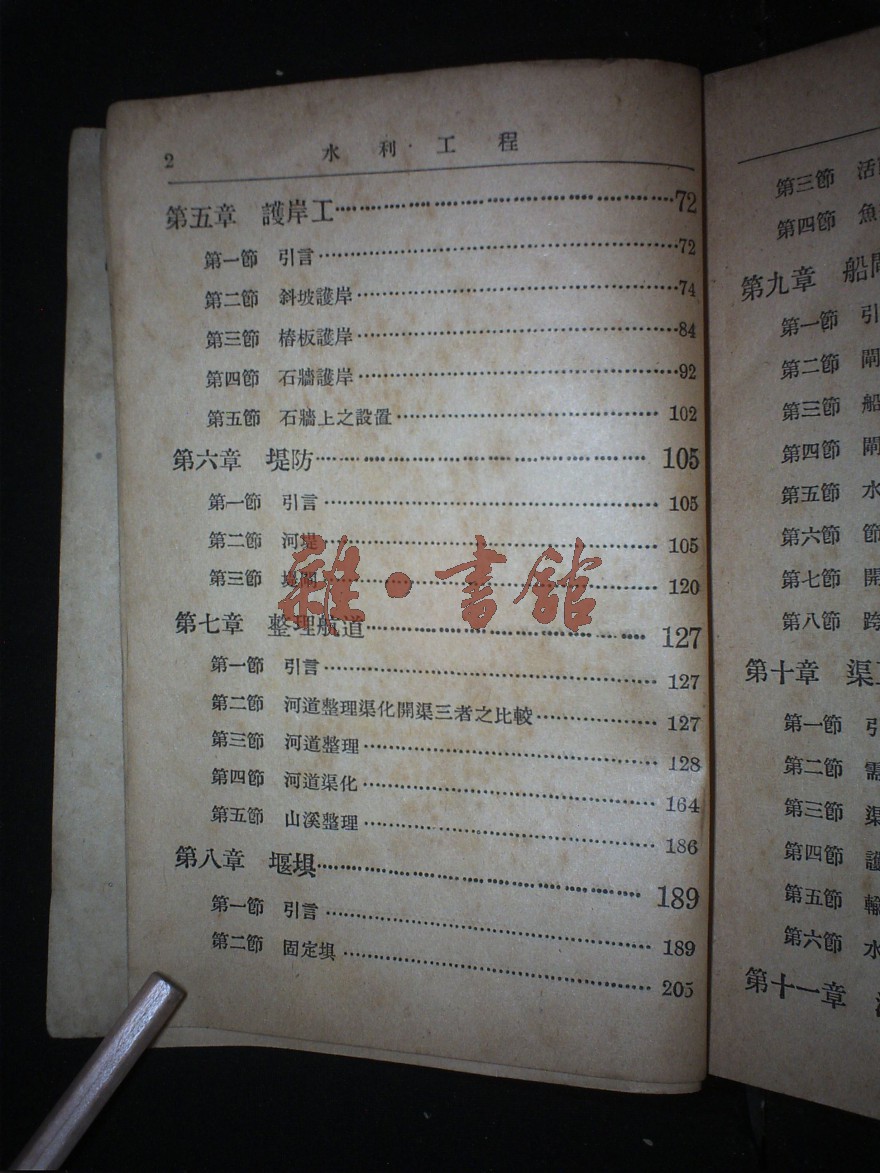 2 水利工程
第五章 護岸工 72
第一節 引言 72
第二節 斜坡護岸 74
第三節 樁板護岸 84
第四節 石牆護岸 92
第五節 石牆上之設置 102
第六章 堤防 105
第一節 引言 105
第二節 河堤 105
第三節 堤閘 120
第七章 整理航道 127
第一節 引言 127
第二節 河道整理渠化開渠三者之比較 127
第三節 河道整理 128
第四節 河道渠化 164
第五節 山溪整理 186
第八章 堰埧 189
第一節 引言 189
第二節 固定埧 205
雜·書館
第三節 活
第四節 魚
第九章 船
第一節 引
第二節 閘
第三節 船
第四節 閘
第五節 水
第六節 節
第七節 開
第八節 跨
第十章 渠
第一節 引
第二節 需
第三節 渠
第四節 護
第五節 輸
第六節 水
第十一章